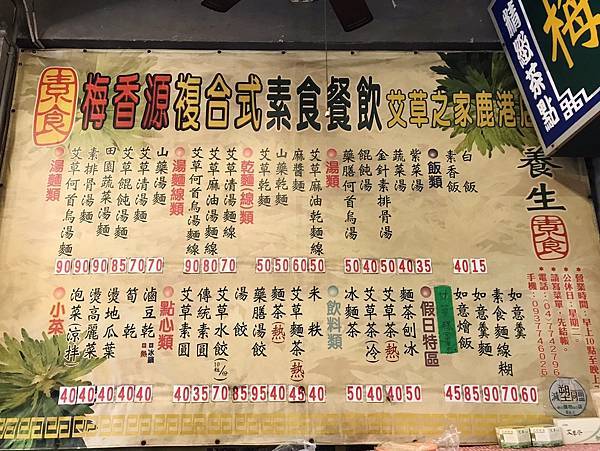 素食
梅香源複合式素食餐飲
艾草之家鹿港店
精緻茶點
梅
養生
素食
飯類
白飯
素香飯
湯類
紫菜湯
蔬菜湯
金針素排骨湯
餛飩湯
藥膳何首烏湯
乾麵線類
艾草麻油乾麵線
麻醬麵
山藥乾麵
艾草乾麵
湯麵線類
艾草清湯麵線
艾草麻油湯麵線
艾草何首烏湯麵線
湯麵類
山藥湯麵
艾草清湯麵
艾草餛飩湯麵
田園蔬菜湯麵
素排骨湯麵
艾草何首烏湯麵
90 90 90 85 70 70
90 80 70
50 50 60 50
50 40 50 40 35
40 15
假日特區
如意羹
素食麵線糊
如意羹麵
如意燴飯
飲料類
麵茶刨冰
艾草茶(熱)
艾草茶(冷)
冰麵茶
米秩
艾草麵茶(熱)
麵茶(熱)
藥膳湯餃
湯餃
艾草水餃(10粒/份)
傳統素圓
艾草素圓
點心類
小菜
滷豆乾
●冰鎮
●熱
筍乾
燙地瓜葉
燙高麗菜
泡菜(涼拌)
40 40 40 40 40
40 35 70 85 95 40 45 40
50 40 40 50
45 85 90 70 60
*營業時間:早上10點至晚上
*公休日:星期一。
*請寫菜單,先結帳。
*電話:04-7742796
手機:0937746026